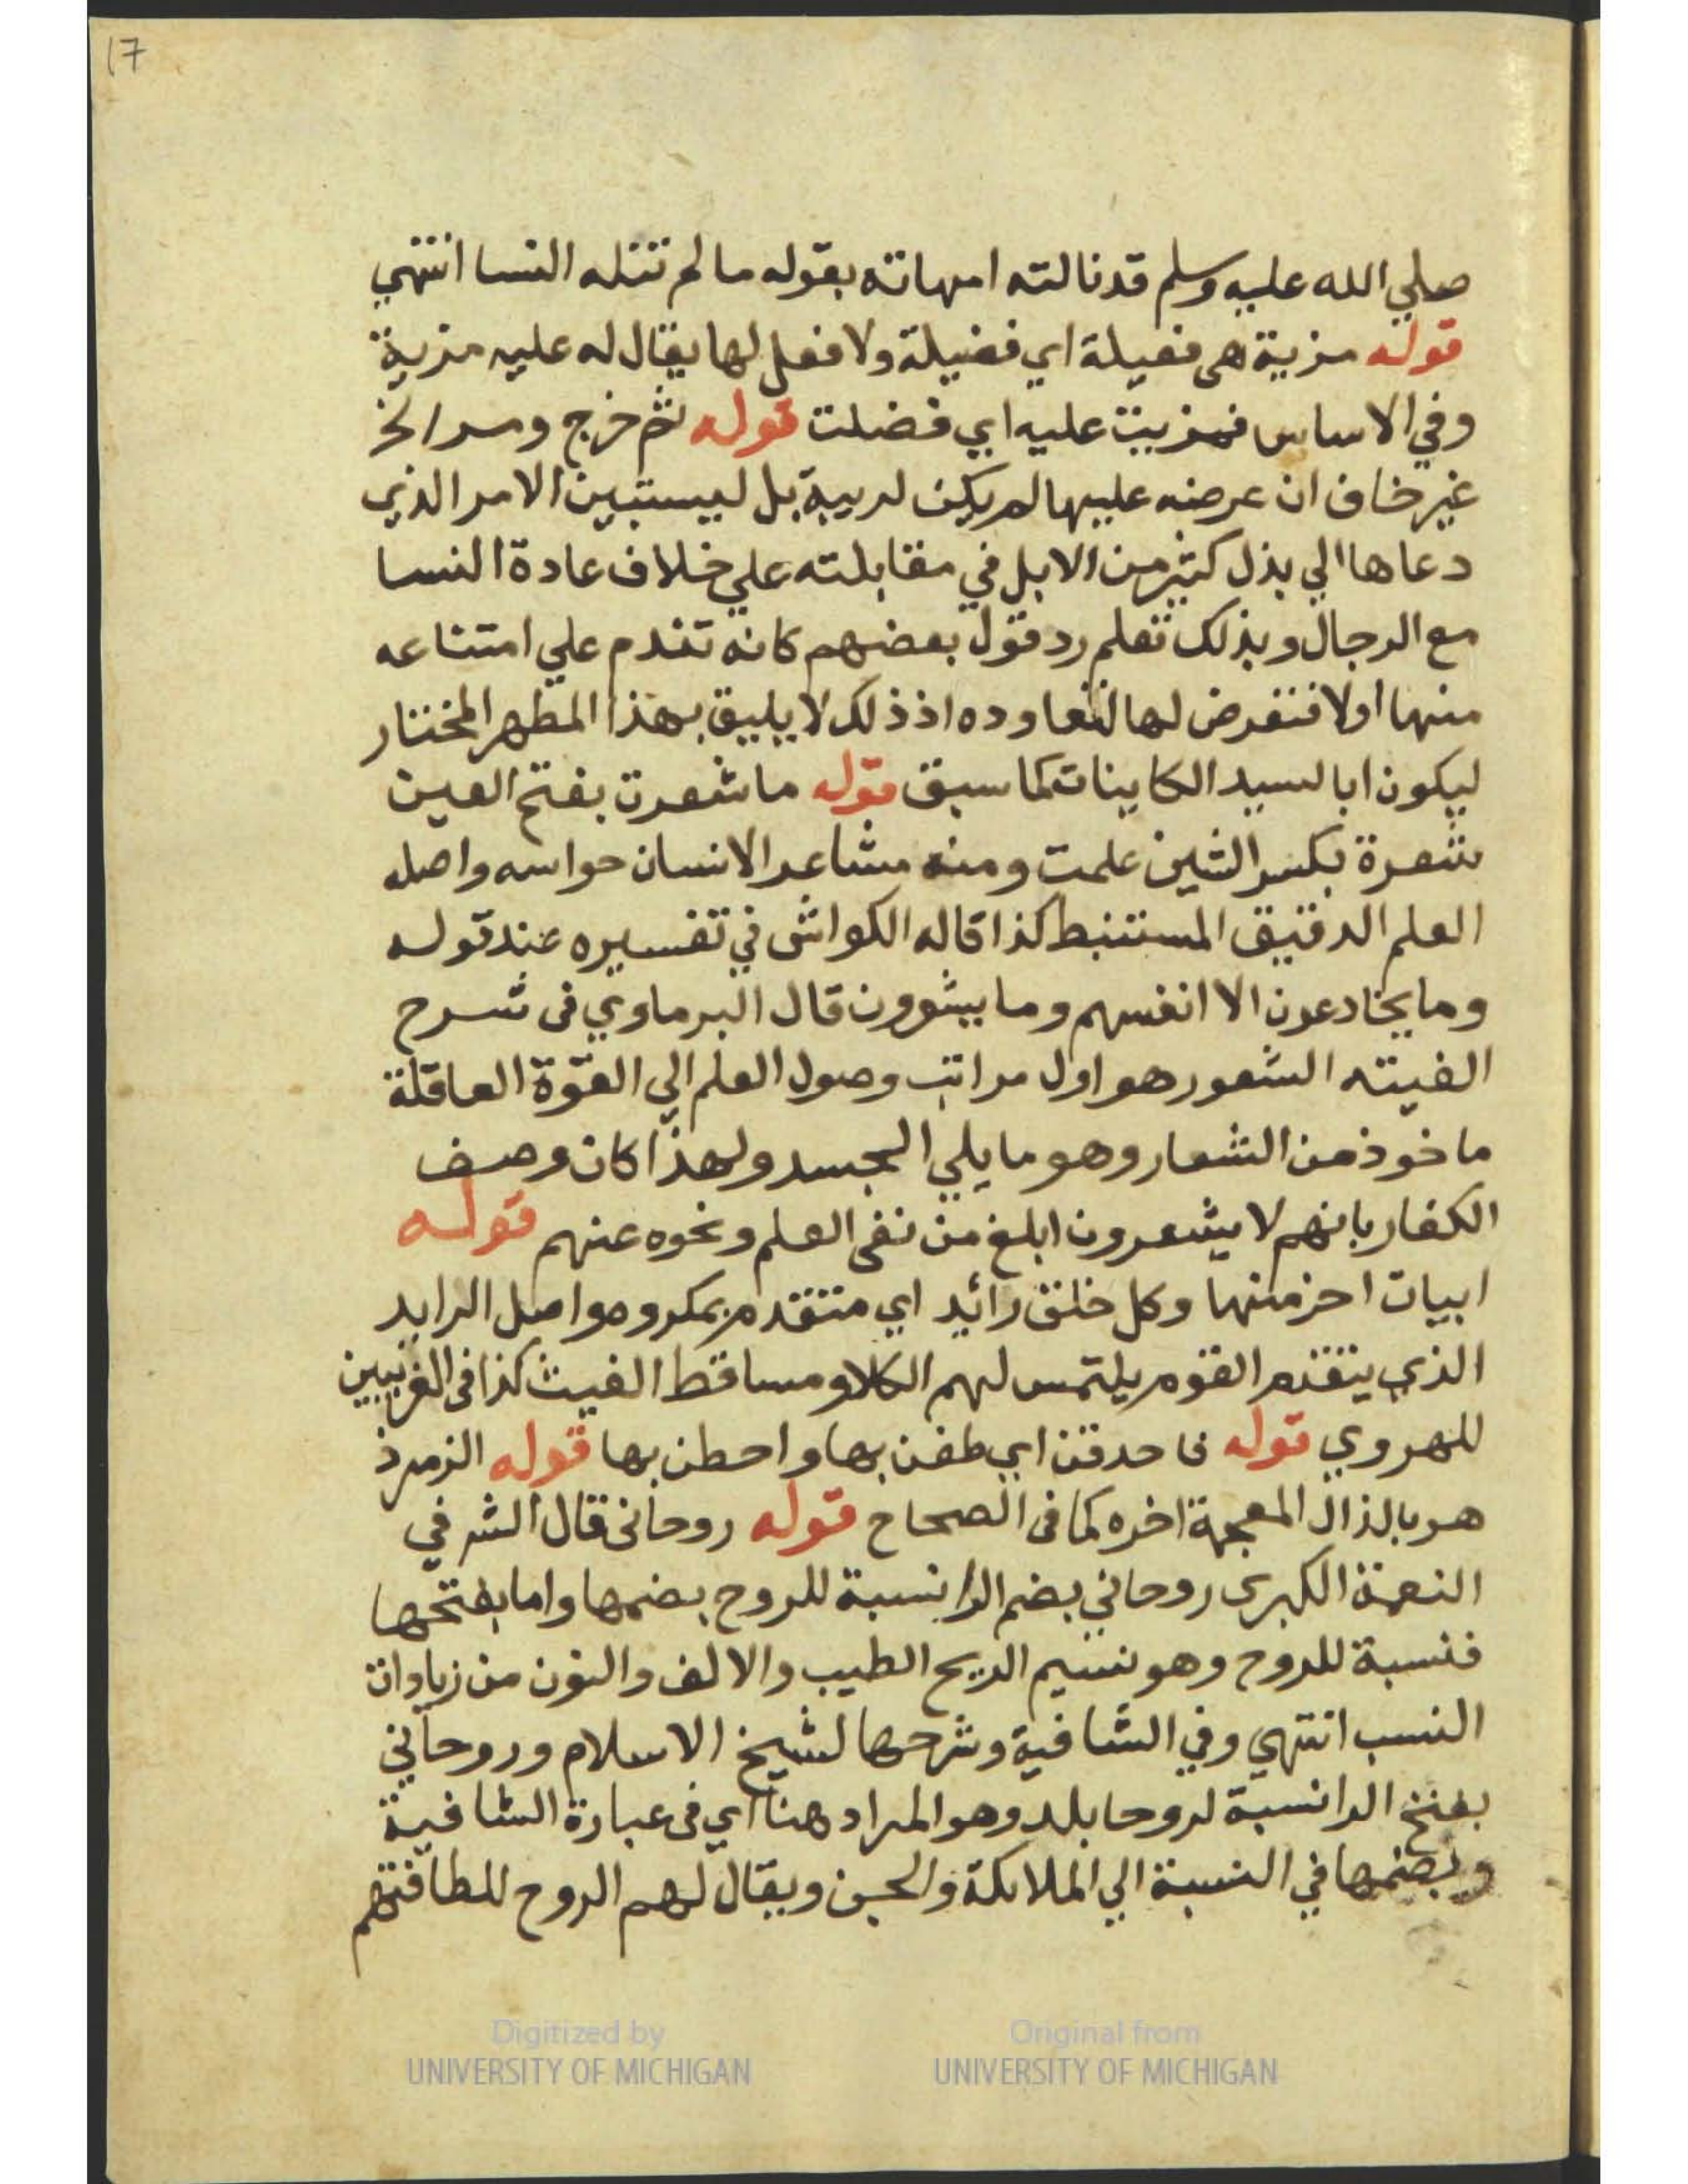 17
صلي الله عليه وسلم قد نالته امهاته بقوله ما لم تنله النسا انتهي
قوله مزية هي فعيلة اي فضيلة ولا فعل لها يقال له عليه مزية
وفي الاساس فمزيت عليه اي فضلت قوله ثم خرج ومر الخ
غير خاف ان عرضه عليها لم يكن لريبة بل ليستبين الامر الذي
دعاها الي بذل كثير من الابل في مقابلته علي خلاف عادة النسا
مع الرجال وبذلك تعلم رد قول بعضهم كانه تقدم علي امتناعه
منها اولا فتعرض لها لتعاوده اذ ذلك لا يليق بهذا المطهر المختار
ليكون ابا لسيد الكاينات كما سبق قوله ما شعرت بفتح العين
شعرة بكسر الشين علمت ومنه مشاعر الانسان حواسه واصله
العلم الدقيق المستنبط كذا قاله الكواشي في تفسيره عند قوله
وما يخادعون الا انفسهم وما يشعرون قال البرماوي في شرح
الفيته الشعور هو اول مراتب وصول العلم الي القوة العاقلة
ماخوذ من الشعار وهو ما يلي الجسد ولهذا كان وصف
الكفار بانهم لا يشعرون ابلغ من نفي العلم ونحوه عنهم قوله
ابيات اخر منها وكل خلق رائد اي متقدم بمكروه واصل الرايد
الذي يتقدم القوم يلتمس لهم الكلا ومساقط الغيث كذا في الغريبين
للهروي قوله فاحدقن اي طفن بها واحطن بها قوله الزمرذ
هو بالذال المعجمة اخره كما في الصحاح قوله روحاني قال الش في
النعمة الكبرى روحاني بضم الرا نسبة للروح بضمها واما بفتحها
فنسبة للروح وهو نسيم الريح الطيب والالف والنون من زيادات
النسب انتهي وفي الشافية وشرحها لشيخ الاسلام وروحاني
بفتح الرا نسبة لروحا بلد وهو المراد هنا اي في عبارة الشافية
وبضمها في النسبة الي الملائكة والجن ويقال لهم الروح للطافتهم
Digitized by
UNIVERSITY OF MICHIGAN
Original from
UNIVERSITY OF MICHIGAN